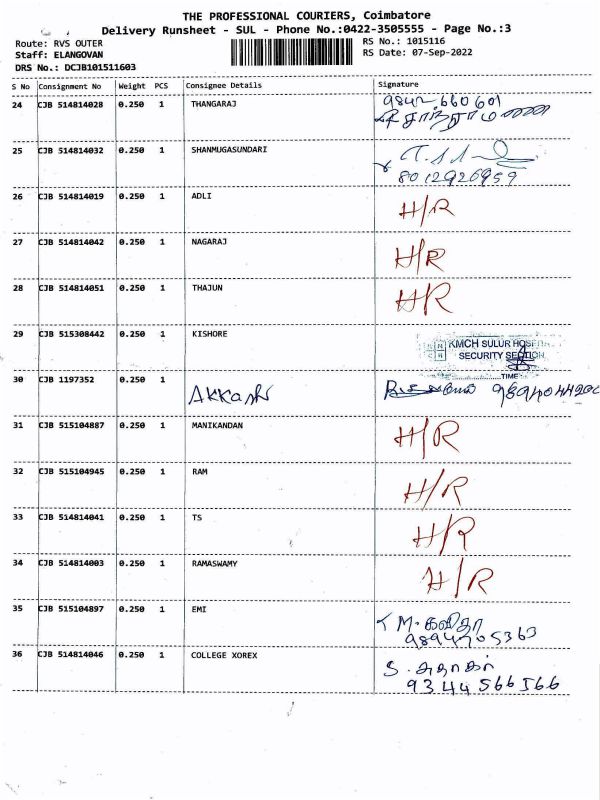 THE PROFESSIONAL COURIERS, Coimbatore
Delivery Runsheet - SUL - Phone No.:0422-3505555 - Page No.:3
Route: RVS OUTER
RS No.: 1015116
Staff: ELANGOVAN
RS Date: 07-Sep-2022
DRS No.: DCJB101511603
S No Consignment No Weight PCS Consignee Details Signature
24 CJB 514814028 0.250 1 THANGARAJ 9842 660601
25 CJB 514814032 0.250 1 SHANMUGASUNDARI
8012926959
26 CJB 514814019 0.250 1 ADLI H/R
27 CJB 514814042 0.250 1 NAGARAJ H/R
28 CJB 514814051 0.250 1 THAJUN H/R
29 CJB 515308442 0.250 1 KISHORE KMCH SULUR HOSPITAL
SECURITY SECTION
TIME
30 CJB 1197352 0.250 1 AKKash
31 CJB 515104887 0.250 1 MANIKANDAN H/R
32 CJB 515104945 0.250 1 RAM H/R
33 CJB 514814041 0.250 1 TS H/R
34 CJB 514814003 0.250 1 RAMASWAMY H/R
35 CJB 515104897 0.250 1 EMI M. கவிதா
9894705363
36 CJB 514814046 0.250 1 COLLEGE XOREX
9344566166